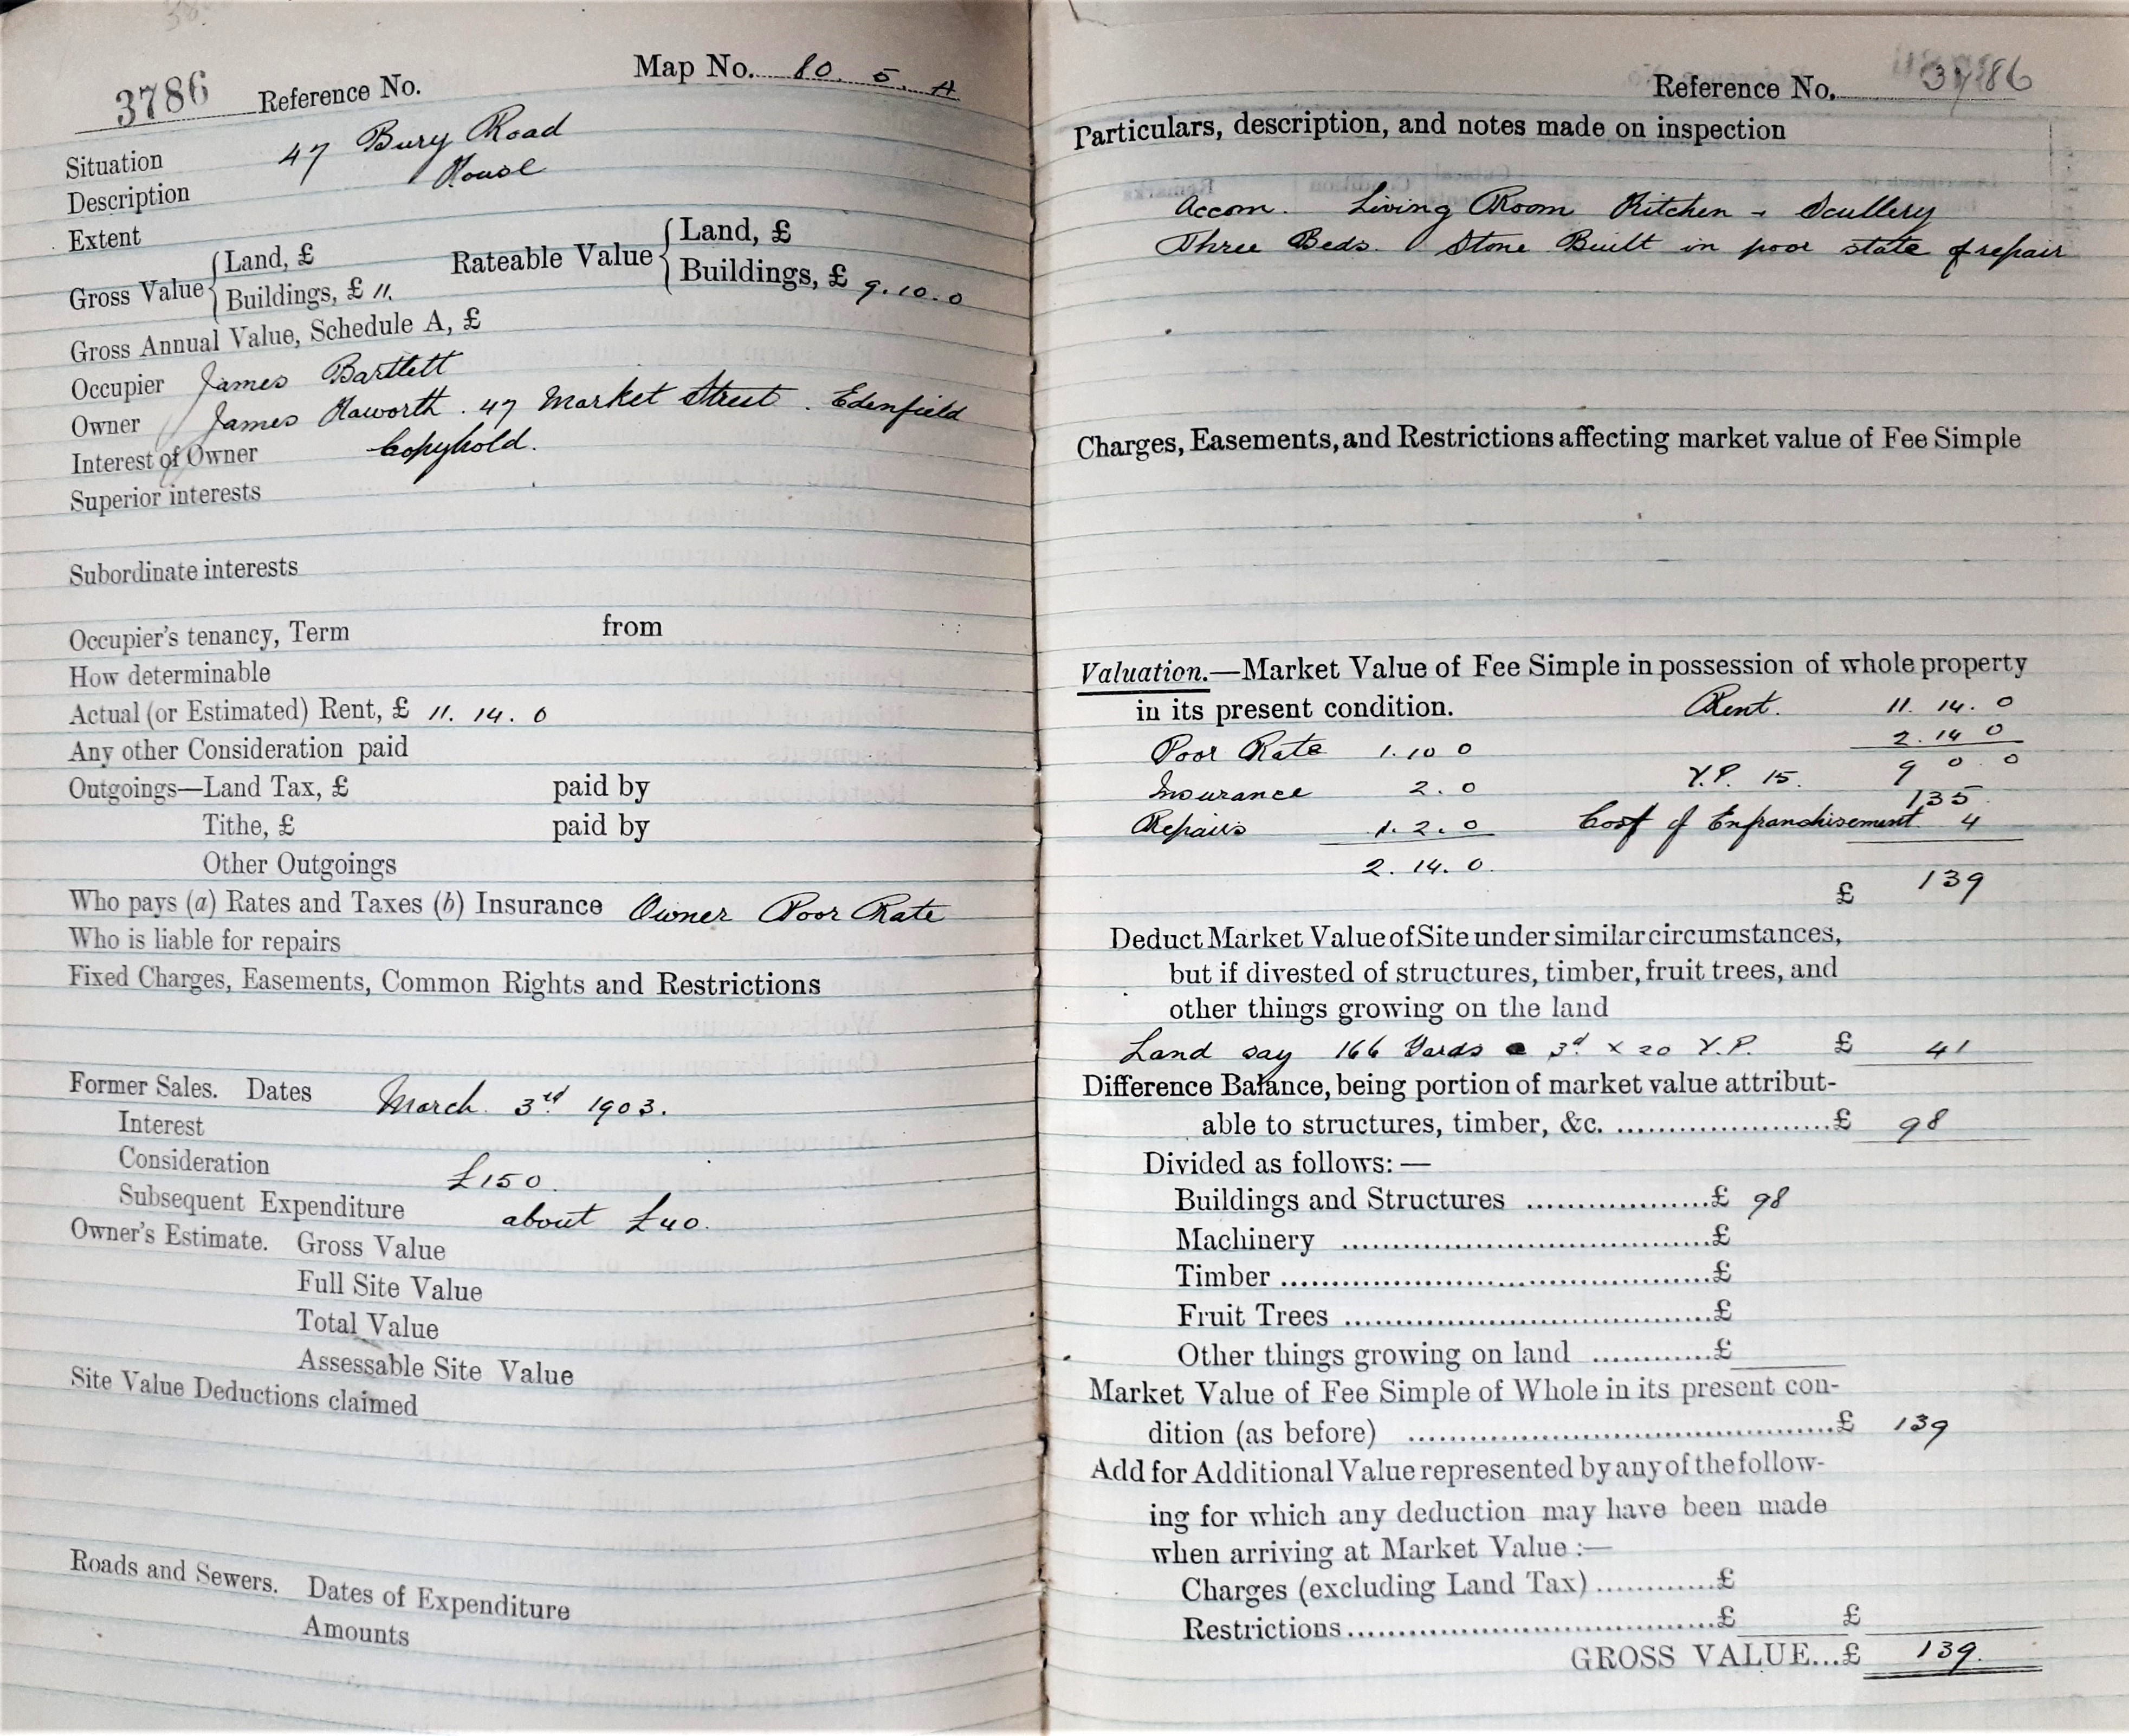 3786 Reference No. Map No. 80. 5. A
Situation 47 Bury Road
Description House
Extent
Gross Value { Land, £
Buildings, £ 11.
Rateable Value { Land, £
Buildings, £ 9.10.0
Gross Annual Value, Schedule A, £
Occupier James Bartlett
Owner James Haworth. 47 Market Street. Edenfield
Interest of Owner Copyhold.
Superior interests
Subordinate interests
Occupier's tenancy, Term from
How determinable
Actual (or Estimated) Rent, £ 11. 14. 0
Any other Consideration paid
Outgoings—Land Tax, £ paid by
Tithe, £ paid by
Other Outgoings
Who pays (a) Rates and Taxes (b) Insurance Owner Poor Rate
Who is liable for repairs
Fixed Charges, Easements, Common Rights and Restrictions
Former Sales. Dates March 3rd 1903.
Interest
Consideration £150.
Subsequent Expenditure about £40.
Owner's Estimate. Gross Value
Full Site Value
Total Value
Assessable Site Value
Site Value Deductions claimed
Roads and Sewers. Dates of Expenditure
Amounts
Reference No. 3786
Particulars, description, and notes made on inspection
Accom. Living Room Kitchen - Scullery
Three Beds. Stone Built in poor state of repair
Charges, Easements, and Restrictions affecting market value of Fee Simple
Valuation.—Market Value of Fee Simple in possession of whole property
in its present condition. Rent. 11. 14. 0
Poor Rate 1.10 0 2. 14 0
Insurance 2. 0 Y.P. 15. 9 0. 0
135
Repairs 1. 2. 0 Cost of Enfranchisement 4
2. 14. 0.
£ 139
Deduct Market Value of Site under similar circumstances,
but if divested of structures, timber, fruit trees, and
other things growing on the land
Land say 166 Yards @ 3d × 20 Y.P. £ 41
Difference Balance, being portion of market value attribut-
able to structures, timber, &c. ....................£ 98
Divided as follows: —
Buildings and Structures ..................£ 98
Machinery ....................................£
Timber ..........................................£
Fruit Trees ...................................£
Other things growing on land ...........£
Market Value of Fee Simple of Whole in its present con-
dition (as before) ..........................................£ 139
Add for Additional Value represented by any of the follow-
ing for which any deduction may have been made
when arriving at Market Value :—
Charges (excluding Land Tax) ...........£
Restrictions ...................................£ £
GROSS VALUE...£ 139.